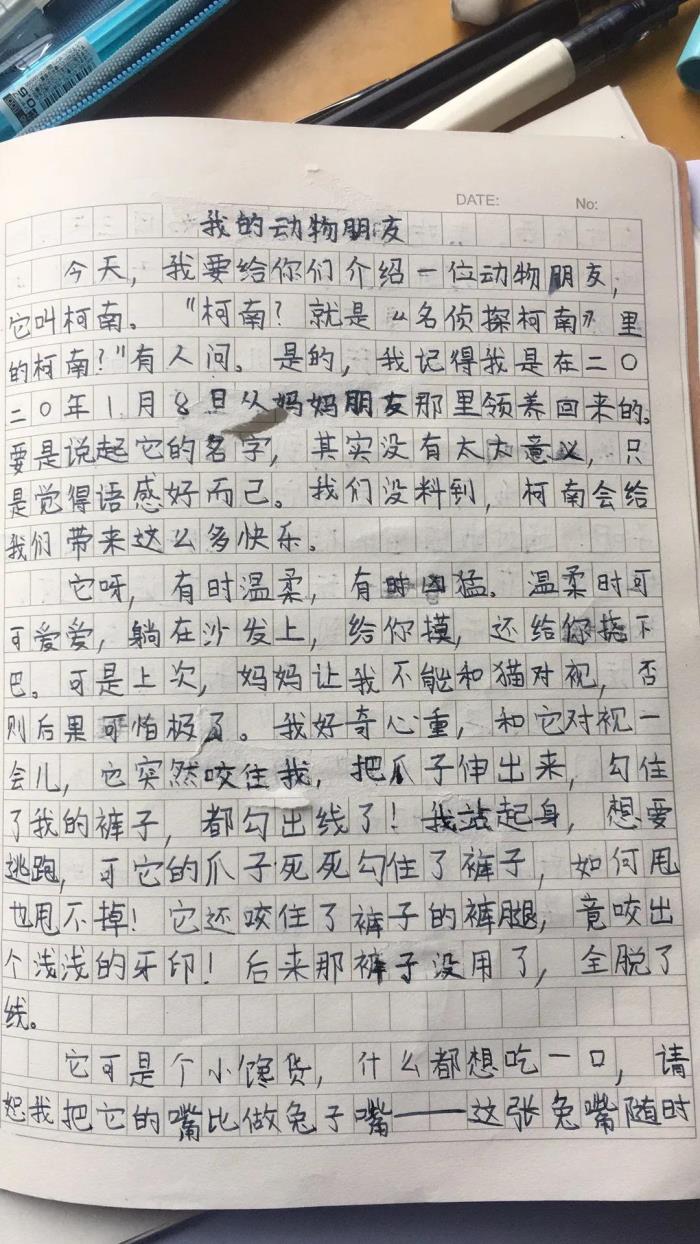 DATE: No:
我的动物朋友
今天，我要给你们介绍一位动物朋友，
它叫柯南。“柯南？就是《名侦探柯南》里
的柯南？”有人问。是的，我记得我是在二〇
二〇年1月8日从妈妈朋友那里领养回来的。
要是说起它的名字，其实没有太大意义，只
是觉得语感好而己。我们没料到，柯南会给
我们带来这么多快乐。
它呀，有时温柔，有时凶猛。温柔时可
可爱爱，躺在沙发上，给你摸，还给你挠下
巴。可是上次，妈妈让我不能和猫对视，否
则后果可怕极了。我好奇心重，和它对视一
会儿，它突然咬住我，把爪子伸出来，勾住
了我的裤子，都勾出线了！我站起身，想要
逃跑，可它的爪子死死勾住了裤子，如何甩
也甩不掉！它还咬住了裤子的裤腿，竟咬出
个浅浅的牙印！后来那裤子没用了，全脱了
线。
它可是个小馋货，什么都想吃一口，请
恕我把它的嘴比做兔子嘴——这张兔嘴随时